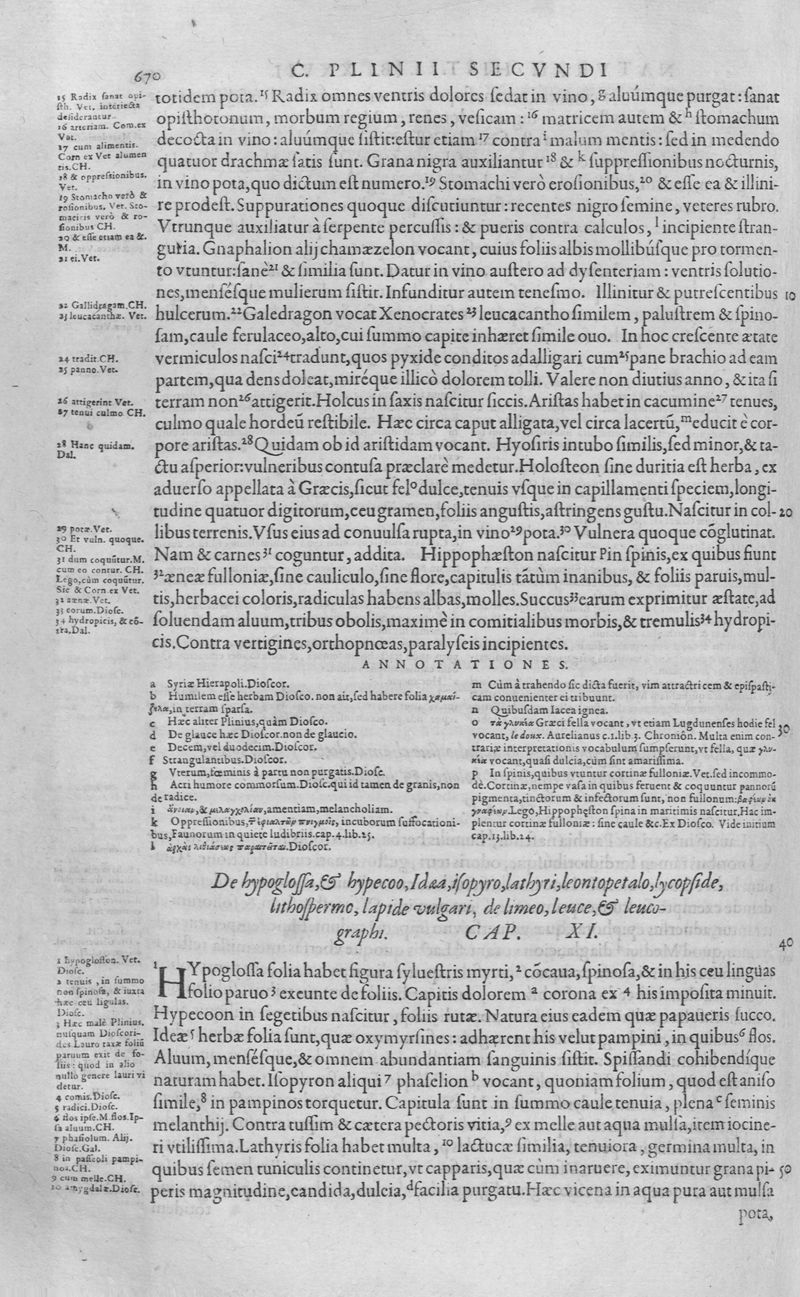 670
C. PLINII SECVNDI
totidem pota.¹⁵ Radix omnes ventris dolores sedat in vino, ᵍ aluúmque purgat: sanat
opisthotonum, morbum regium, renes, vesicam: ¹⁶ matricem autem & ʰ stomachum
decocta in vino: aluúmque sistit: estur etiam ¹⁷ contra ⁱ malum mentis: sed in medendo
quatuor drachmæ satis sunt. Grana nigra auxiliantur ¹⁸ & ᵏ suppressionibus nocturnis,
in vino pota, quo dictum est numero.¹⁹ Stomachi verò erosionibus,²⁰ & esse ea & illini-
re prodest. Suppurationes quoque discutiuntur: recentes nigro semine, veteres rubro.
Vtrunque auxiliatur à serpente percussis: & pueris contra calculos, ˡ incipiente stran-
guria. Gnaphalion alij chamæzelon vocant, cuius foliis albis mollibúsque pro tormen-
to vtuntur: sanè²¹ & similia sunt. Datur in vino austero ad dysenteriam: ventris solutio-
nes, mensésque mulierum sistit. Infunditur autem tenesmo. Illinitur & putrescentibus 10
hulcerum.²²Galedragon vocat Xenocrates ²³ leucacantho similem, palustrem & spino-
sam, caule ferulaceo, alto, cui summo capite inhæret simile ouo. In hoc crescente ætate
vermiculos nasci²⁴tradunt, quos pyxide conditos adalligari cum²⁵pane brachio ad eam
partem, qua dens doleat, miréque illicò dolorem tolli. Valere non diutius anno, & ita si
terram non²⁶attigerit. Holcus in saxis nascitur siccis. Aristas habet in cacumine²⁷ tenues,
culmo quale hordeũ restibile. Hæc circa caput alligata, vel circa lacertũ, ᵐeducit è cor-
pore aristas.²⁸Quidam ob id aristidam vocant. Hyosiris intubo similis, sed minor, & ta-
ctu asperior: vulneribus contusa præclarè medetur. Holosteon sine duritia est herba, ex
aduerso appellata à Græcis, sicut felᵒdulce, tenuis vsque in capillamenti speciem, longi-
tudine quatuor digitorum, ceu gramen, foliis angustis, astringens gustu. Nascitur in col- 20
libus terrenis. Vsus eius ad conuulsa rupta, in vino²⁹pota.³⁰ Vulnera quoque cõglutinat.
Nam & carnes ³¹ coguntur, addita. Hippophæston nascitur ᵖin spinis, ex quibus fiunt
³²æneæ fulloniæ, sine cauliculo, sine flore, capitulis tãtùm inanibus, & foliis paruis, mul-
tis, herbacei coloris, radiculas habens albas, molles. Succus³³earum exprimitur æstate, ad
soluendam aluum, tribus obolis, maximè in comitialibus morbis, & tremulis³⁴ hydropi-
cis. Contra vertigines, orthopnœas, paralyseis incipientes.
15 Radix sanat opi-
sth. Vet. interiecta
desiderantur.
16 arteriam. Corn. ex
Vet.
17 cum alimentis.
Corn ex Vet alumen
tis. CH.
18 & oppressionibus.
Vet.
19 Stomacho verò &
rosionibus. Vet. Sto-
machis verò & ro-
sionibus CH.
20 & esse etiam ea &.
M.
21 ei. Vet.
22 Gallidragam. CH.
23 leucacanthæ. Vet.
24 tradit. CH.
25 panno. Vet.
26 attigerint Vet.
27 tenui culmo CH.
28 Hanc quidam.
Dal.
29 potæ. Vet.
30 Et vuln. quoque.
CH.
31 dum coquũtur. M.
cum eo contur. CH.
Lego, cùm coquũtur.
Sic & Corn ex Vet.
32 aænæ. Vet.
33 eorum. Diosc.
34 hydropicis, & cõ-
tra. Dal.
ANNOTATIONES.
a Syriæ Hierapoli. Dioscor.
b Humilem esse herbam Diosco. non ait, sed habere folia χαμαί-
ζηλα, in terram sparsa.
c Hæc aliter Plinius, quàm Diosco.
d De glauce hæc Dioscor. non de glaucio.
e Decem, vel duodecim. Dioscor.
f Strangulantibus. Dioscor.
g Vterum, fœminis à partu non purgatis. Diosc.
h Acri humore commorsum. Diosc. qui id tamen de granis, non
de radice.
i ἄνοιαν, & μελαγχολίαν, amentiam, melancholiam.
k Oppressionibus, ἐφιαλτῶν πνιγμοῖς, incuborum suffocationi-
bus, Faunorum in quiete ludibriis. cap. 4. lib. 25.
l ἀρχὰς λιθιάσεως παραιτεῖται. Dioscor.
m Cùm à trahendo sic dicta fuerit, vim attractricem & epispasti-
cam conuenienter ei tribuunt.
n Quibusdam Iacea ignea.
o τὰ γλυκέα Græci fella vocant, vt etiam Lugdunenses hodie fel 30
vocant, le doux. Aurelianus c. 1. lib. 3. Chroniôn. Multa enim con-
trariæ interpretationis vocabulum sumpserunt, vt fella, quæ γλυ-
κέα vocant, quasi dulcia, cùm sint amarissima.
p In spinis, quibus vtuntur cortinæ fulloniæ. Vet. sed incommo-
dè. Cortinæ, nempe vasa in quibus feruent & coquuntur pannorũ
pigmenta, tinctorum & infectorum sunt, non fullonum: βαφέων ἐκ
γναφέων. Lego, Hippophęston spina in maritimis nascitur. Hac im-
plentur cortinæ fulloniæ: sine caule &c. Ex Diosco. Vide initium
cap. 13. lib. 24.
De hypoglossa, & hypecoo, Idæa, isopyro, lathyri, leontopetalo, lycopside,
lithospermo, lapide vulgari, de limeo, leuce, & leuco-
graphi. CAP. XI.
40
HYpoglossa folia habet figura syluestris myrti, ² cõcaua, spinosa, & in his ceu linguas
folio paruo ³ exeunte de foliis. Capitis dolorem ᵃ corona ex ⁴ his imposita minuit.
Hypecoon in segetibus nascitur, foliis rutæ. Natura eius eadem quæ papaueris succo.
Ideæ⁵ herbæ folia sunt, quæ oxymyrsines: adhærent his velut pampini, in quibus⁶ flos.
Aluum, mensésque, & omnem abundantiam sanguinis sistit. Spissandi cohibendíque
naturam habet. Isopyron aliqui ⁷ phaselion ᵇ vocant, quoniam folium, quod est aniso
simile,⁸ in pampinos torquetur. Capitula sunt in summo caule tenuia, plena ᶜ seminis
melanthij. Contra tussim & cætera pectoris vitia,⁹ ex melle aut aqua mulsa, item iocine-
ri vtilissima. Lathyris folia habet multa, ¹⁰ lactucæ similia, tenuiora, germina multa, in
quibus semen tuniculis continetur, vt capparis, quæ cùm inaruere, eximuntur grana pi- 50
peris magnitudine, candida, dulcia, ᵈfacilia purgatu. Hæc vicena in aqua pura aut mulsa
pota,
1 hypoglosson. Vet.
Diosc.
2 tenuis, in summo
non spinosa, & iuxta
hæc ceu ligulas.
Diosc.
3 Hæc malè Plinius.
nusquam Dioscori-
des Lauro taxæ foliũ
paruum exit de fo-
liis: quod in alio
nullo genere lauri vi
detur.
4 comis. Diosc.
5 radici. Diosc.
6 flos ipse. M. flos. Ip-
sa aluum. CH.
7 phasiolum. Alij.
Diosc. Gal.
8 in passeoli pampi-
nos. CH.
9 cum melle. CH.
10 amygdalæ. Diosc.